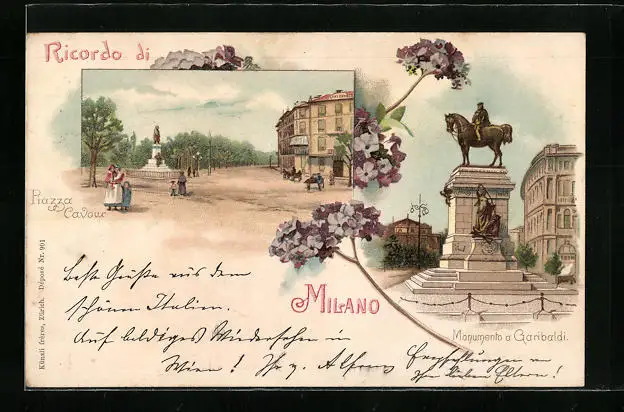 Ricordo di
Piazza Cavour
MILANO
Monumento a Garibaldi.
Künzli frères, Zürich. Déposé Nr. 901
Beste Grüße aus dem
schönen Italien.
Auf baldiges Wiedersehen in
Wien! Ihr Alfons
Empfehlungen an
die lieben Eltern!